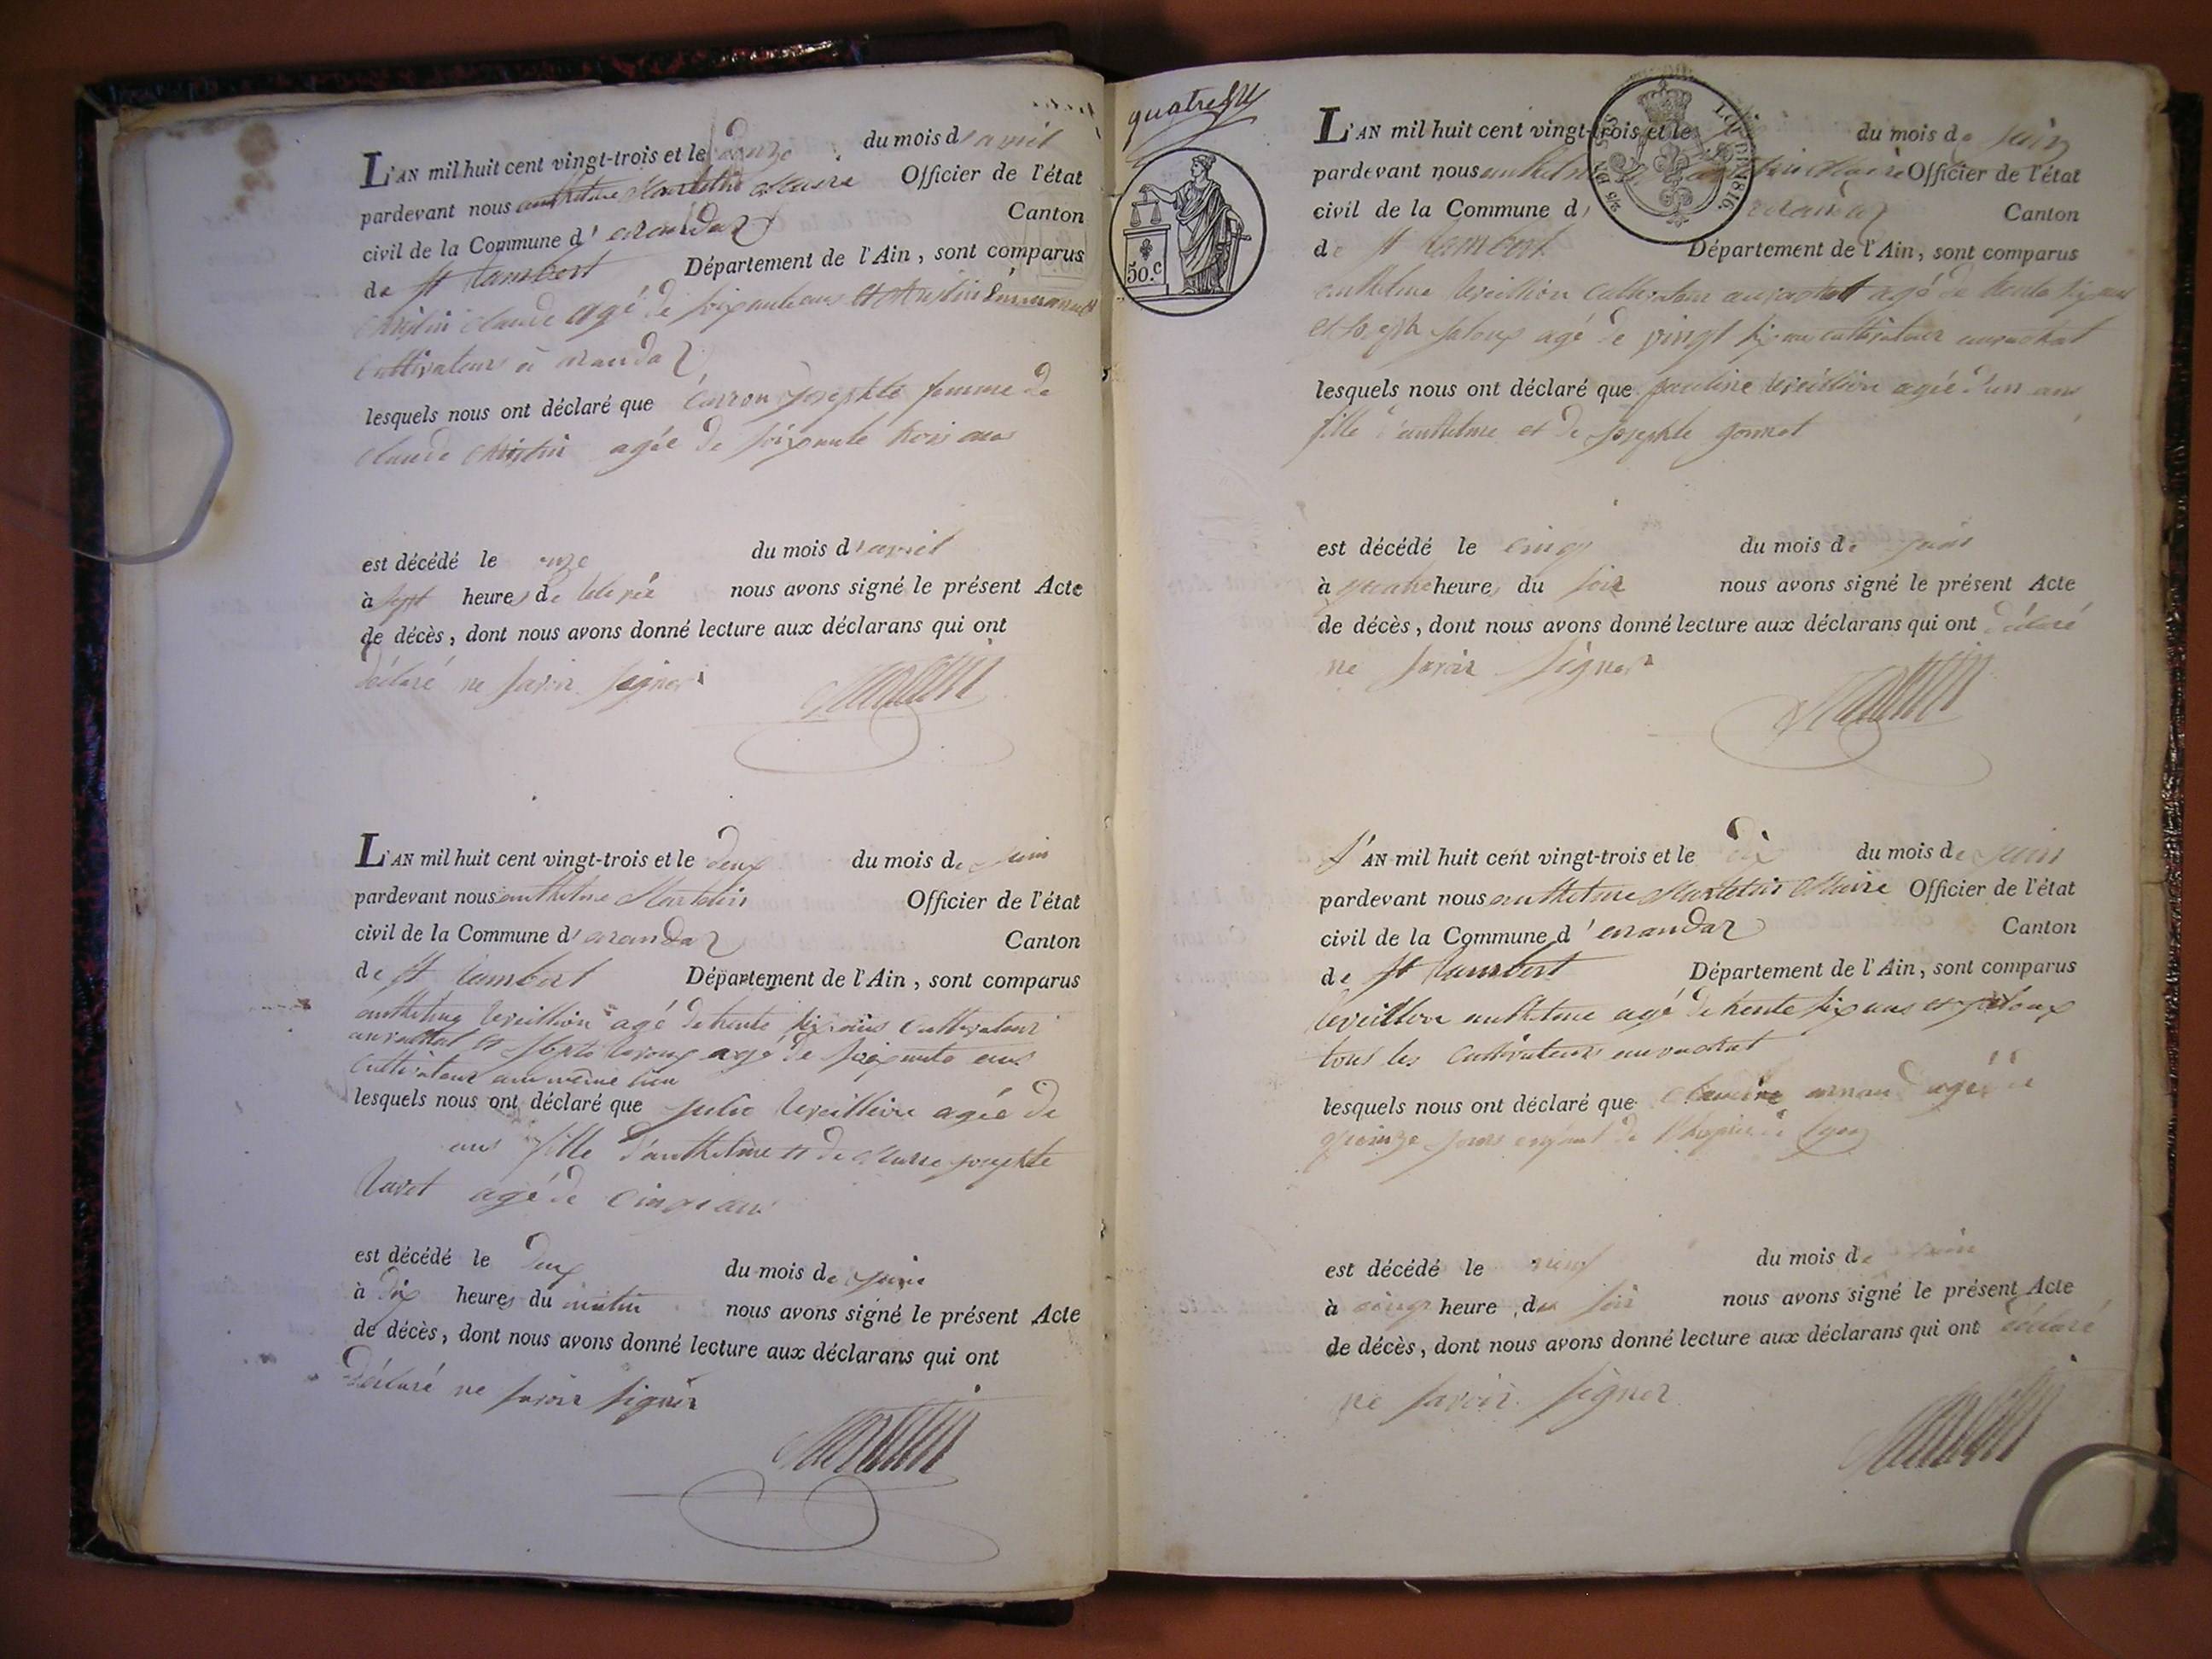 L'AN mil huit cent vingt-trois et le douze du mois d'avril
pardevant nous anthelme Martelin Maire Officier de l'état
civil de la Commune d'arandaz Canton
de st rambert Département de l'Ain, sont comparus
Christin Claude agé de soixante ans et Christin
cultivateurs à arandaz
lesquels nous ont déclaré que Carron Josephte femme de
claude Christin agée de soixante trois ans
est décédé le onze du mois d'avril
à sept heures de nous avons signé le présent Acte
de décès, dont nous avons donné lecture aux déclarans qui ont
déclaré ne savoir signer
Martelin
L'AN mil huit cent vingt-trois et le deux du mois de juin
pardevant nous anthelme Martelin Officier de l'état
civil de la Commune d'arandaz Canton
de st rambert Département de l'Ain, sont comparus
anthelme Reveillion agé de trente six ans cultivateur
au rachat et agé de soixante ans
cultivateur au meme lieu
lesquels nous ont déclaré que julie Reveillion agée de
ans fille d'anthelme et de Marie josephte
Ravet agé de cinq ans
est décédé le deux du mois de juin
à dix heures du matin nous avons signé le présent Acte
de décès, dont nous avons donné lecture aux déclarans qui ont
déclaré ne savoir signer
Martelin
quatre
50.c
L'AN mil huit cent vingt-trois et le du mois de juin
pardevant nous anthelme Martelin Maire Officier de l'état
civil de la Commune d'arandaz Canton
de st rambert Département de l'Ain, sont comparus
anthelme Reveillion cultivateur au rachat agé de trente six ans
et joseph jaloux agé de vingt six ans cultivateur au rachat
lesquels nous ont déclaré que pauline Reveillion agée d'un an
fille d'anthelme et de Josephte gonnet
est décédé le cinq du mois de juin
à quatre heures du soir nous avons signé le présent Acte
de décès, dont nous avons donné lecture aux déclarans qui ont déclaré
ne savoir signer
Martelin
L'AN mil huit cent vingt-trois et le dix du mois de juin
pardevant nous anthelme Martelin Maire Officier de l'état
civil de la Commune d'arandaz Canton
de st rambert Département de l'Ain, sont comparus
Reveillion anthelme agé de trente six ans et jaloux
tous les cultivateurs au rachat
lesquels nous ont déclaré que Claudine agée de
quinze jours enfant de l'hospice de Lyon
est décédé le neuf du mois de juin
à cinq heure du soir nous avons signé le présent Acte
de décès, dont nous avons donné lecture aux déclarans qui ont déclaré
ne savoir signer
Martelin